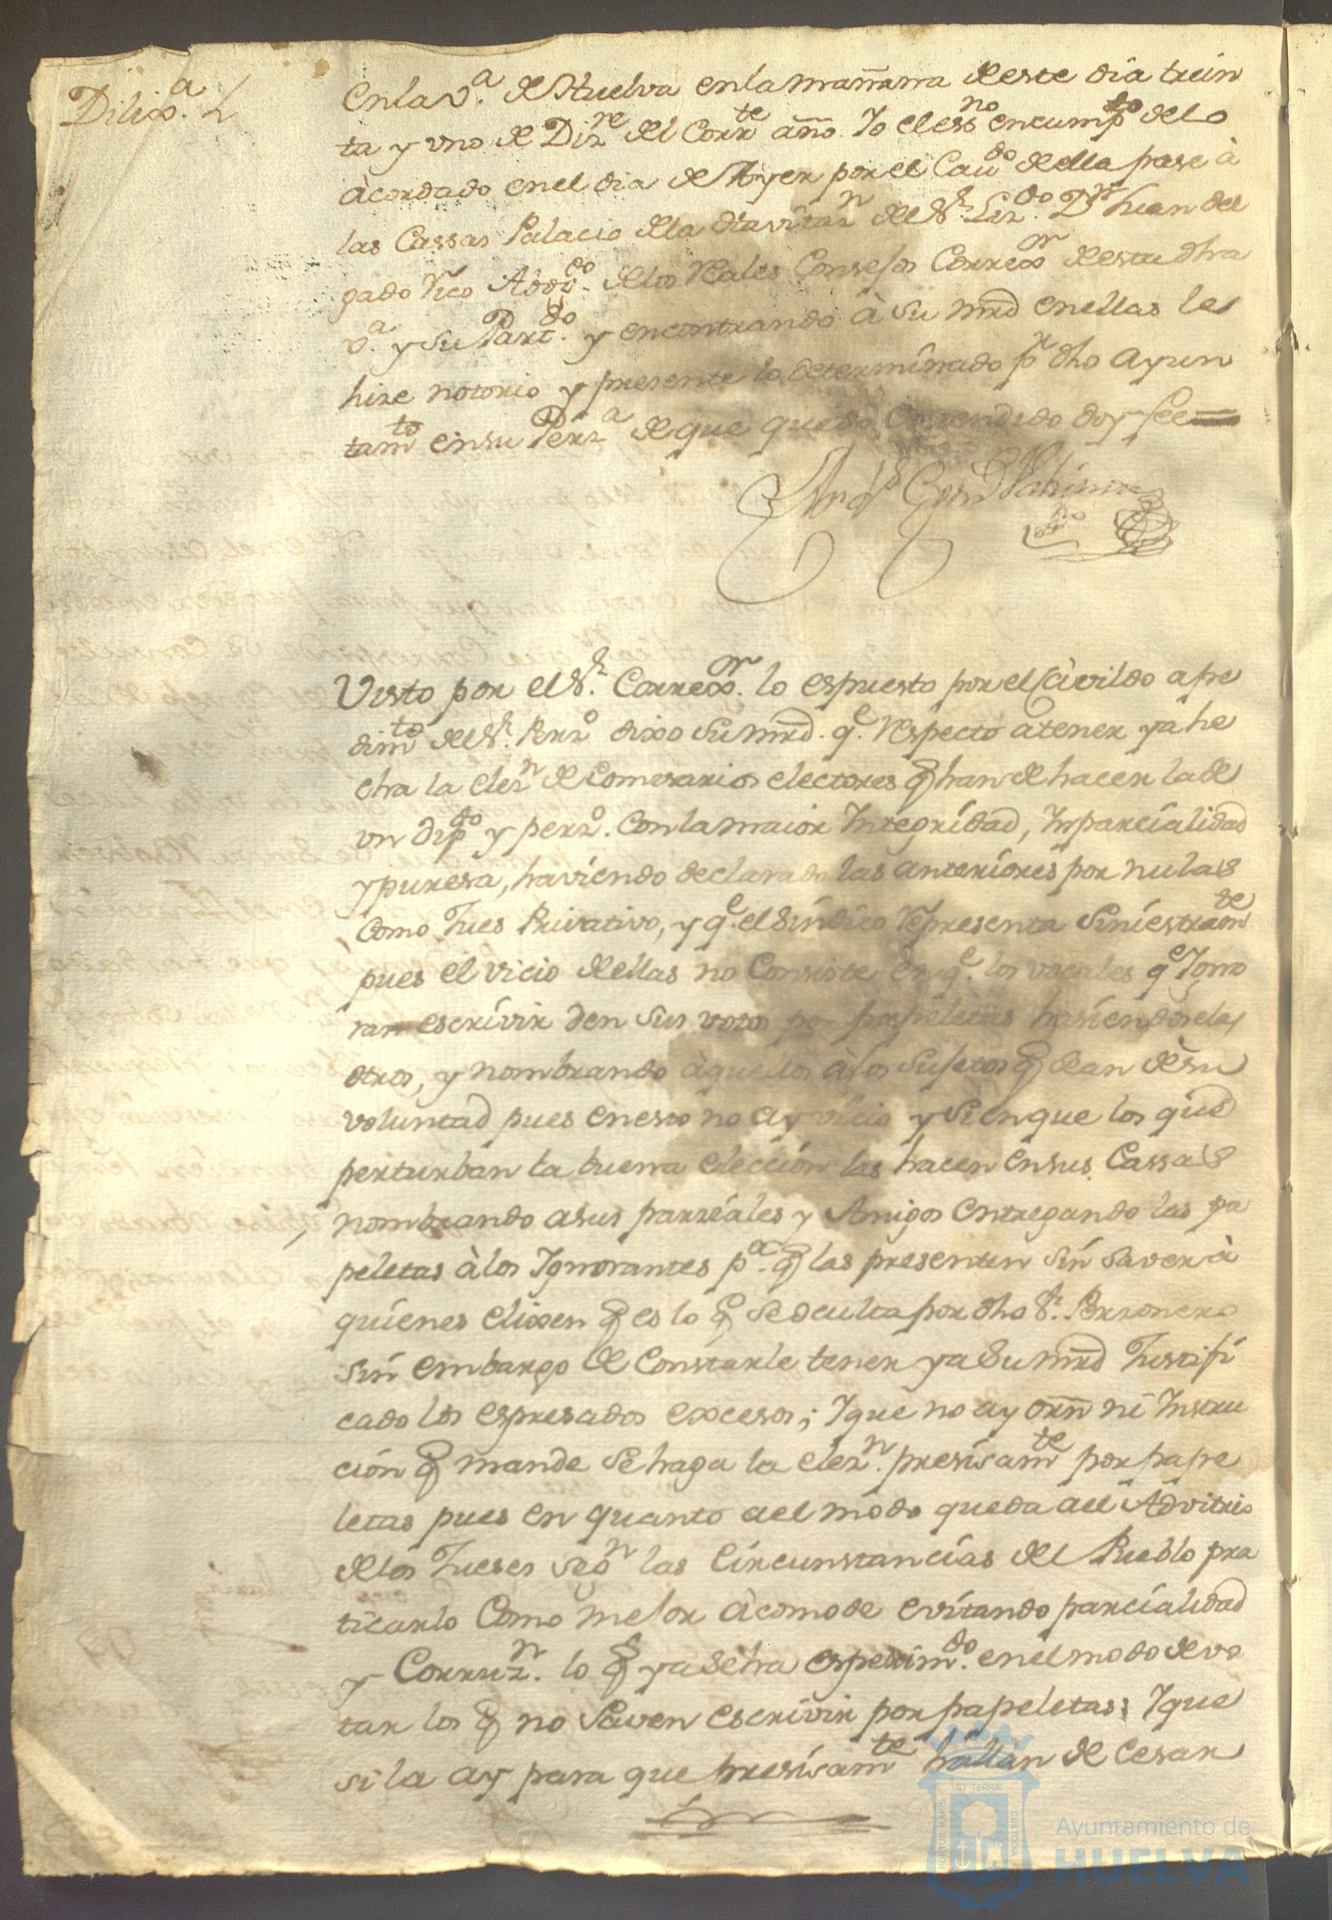 Dilix.ª L
En la v.ª de Huelva en la mañana de este dia trein
ta y uno de Diz.re del Corr.te año. Yo el ess.no en cump.to de lo
àcordado en el dia de Ayer por el Cav.do de ella pase à
las Cassas Palacio de la Havitaz.n del S.r Liz.do D.n Juan del
gado Rico Abog.do de los Reales Consejos Correx.or de esta dha
v.ª y su Part.do y encontrando à su mrd en ellas le
hize notorio y presente lo determinado p.r dho Ayun
tam.to en su Perz.ª de que quedo entendido doy fee
Visto por el S.r Correx.or lo espuesto por el Cavildo a pe
dim.to del S.r Perz.o dixo su mrd. q.e respecto a tener ya he
cha la elez.n de Comisarios electores q han de hacer la de
un Dip.do y perz.o con la maior Integridad, Inparcialidad
y puresa, haviendo declarado las anteriores por nulas
Como Jues Privativo, y q.e el Sindico representa Siniestram.te
pues el vicio de ellas no Consiste en q.e los vocales q.e Igno
ran escrivir den sus votos por papeletas hasiendoselas
otros, y nombrando àquellos à los Sujetos q sean de su
voluntad pues en esto no ay vicio y si en que los que
perturban la buena eleccion las hacen en sus Cassas
nombrando a sus parsiales y Amigos entregando las pa
peletas à los Ignorantes p.ª q las presenten sin Saver à
quienes elixen q es lo q Se oculta por dho S.r Personero
sin embargo de Constarle tener ya Su mrd Justifi
cado los espresados excesos; Y que no ay orn ni Instru
ción q mande Se haga la elez.n presisam.te por pape
letas pues en quanto a el modo queda a el Advitrio
de los Jueses seg.n las Circunstancias del Pueblo pra
ticarlo Como mejor àcomode evitando parcialidad
y Corruz.n lo q ya se ha esperim.do en el modo de vo
tar los q no Saven escrivir por papeletas; Y que
si la ay para que presisam.te hallan de cesar
Ayuntamiento de
HUELVA